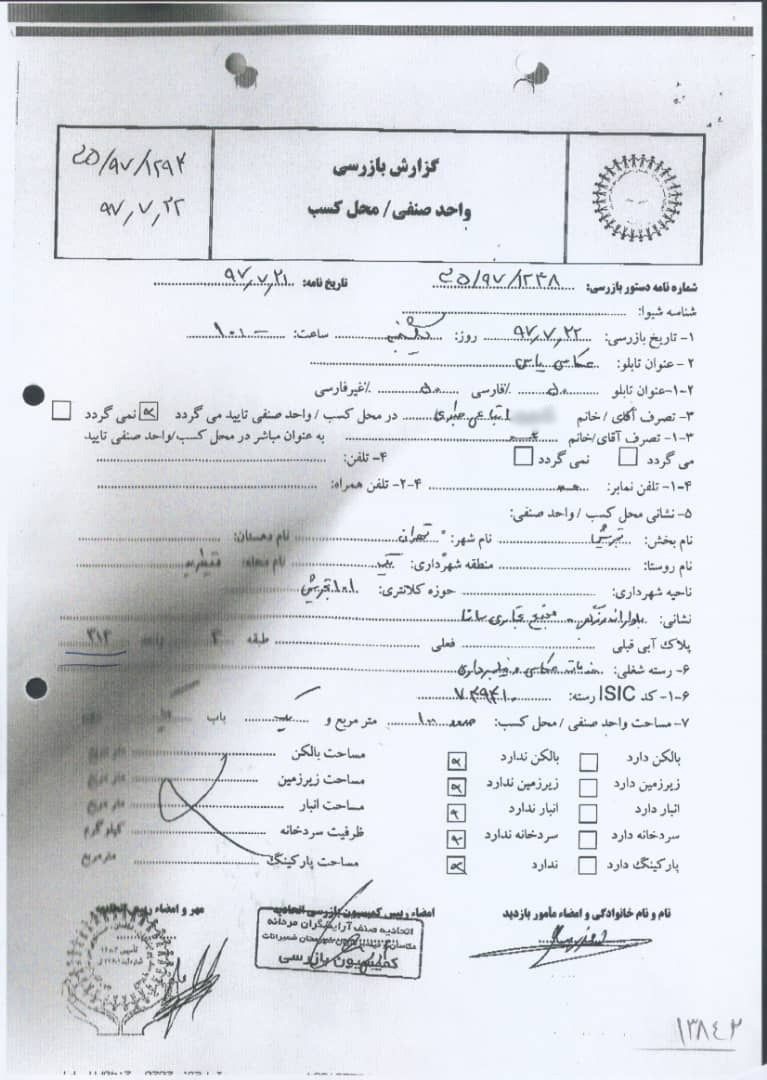 ۲۵/۹۷/۱۲۹۴
۹۷,۷,۲۲
گزارش بازرسی
واحد صنفی / محل کسب
شماره نامه دستور بازرسی: ۲۵/۹۷/۱۲۳۸ تاریخ نامه: ۹۷,۷,۲۱
شناسه شیوا:
۱- تاریخ بازرسی: ۹۷,۷,۲۲ روز: یکشنبه ساعت:
۲- عنوان تابلو: عکاسی یاس
۱-۲-عنوان تابلو ۵۰ ٪فارسی ۵۰ ٪غیرفارسی
۳- تصرف آقای / خانم در محل کسب / واحد صنفی تایید می گردد نمی گردد
۱-۳- تصرف آقای/خانم به عنوان مباشر در محل کسب/واحد صنفی تایید
می گردد نمی گردد ۴- تلفن:
۱-۴- تلفن نمابر: ۲-۴- تلفن همراه:
۵- نشانی محل کسب / واحد صنفی:
نام بخش: نام شهر: تهران نام دهستان:
نام روستا: منطقه شهرداری: یک نام محله: قیطریه
ناحیه شهرداری: حوزه کلانتری: ۱۰۱ تجریش
نشانی: مجتمع تجاری سانا
پلاک آبی قبلی فعلی طبقه ۳ واحد ۳۱۲
۶- رسته شغلی: خدمات عکاسی و فیلمبرداری
۱-۶- کد ISIC رسته: ۷۴۹۴۱۰
۷- مساحت واحد صنفی / محل کسب: حدود ۱۰۰ متر مربع و یک باب
بالکن دارد بالکن ندارد مساحت بالکن متر مربع
زیرزمین دارد زیرزمین ندارد مساحت زیرزمین متر مربع
انبار دارد انبار ندارد مساحت انبار متر مربع
سردخانه دارد سردخانه ندارد ظرفیت سردخانه کیلوگرم
پارکینگ دارد ندارد مساحت پارکینگ مترمربع
نام و نام خانوادگی و امضاء مأمور بازدید امضاء رییس کمیسیون بازرسی اتحادیه مهر و امضاء رییس اتحادیه
اتحادیه صنف آرایشگران مردانه
شهرستان شمیرانات
کمیسیون بازرسی
۱۳۸۴۲